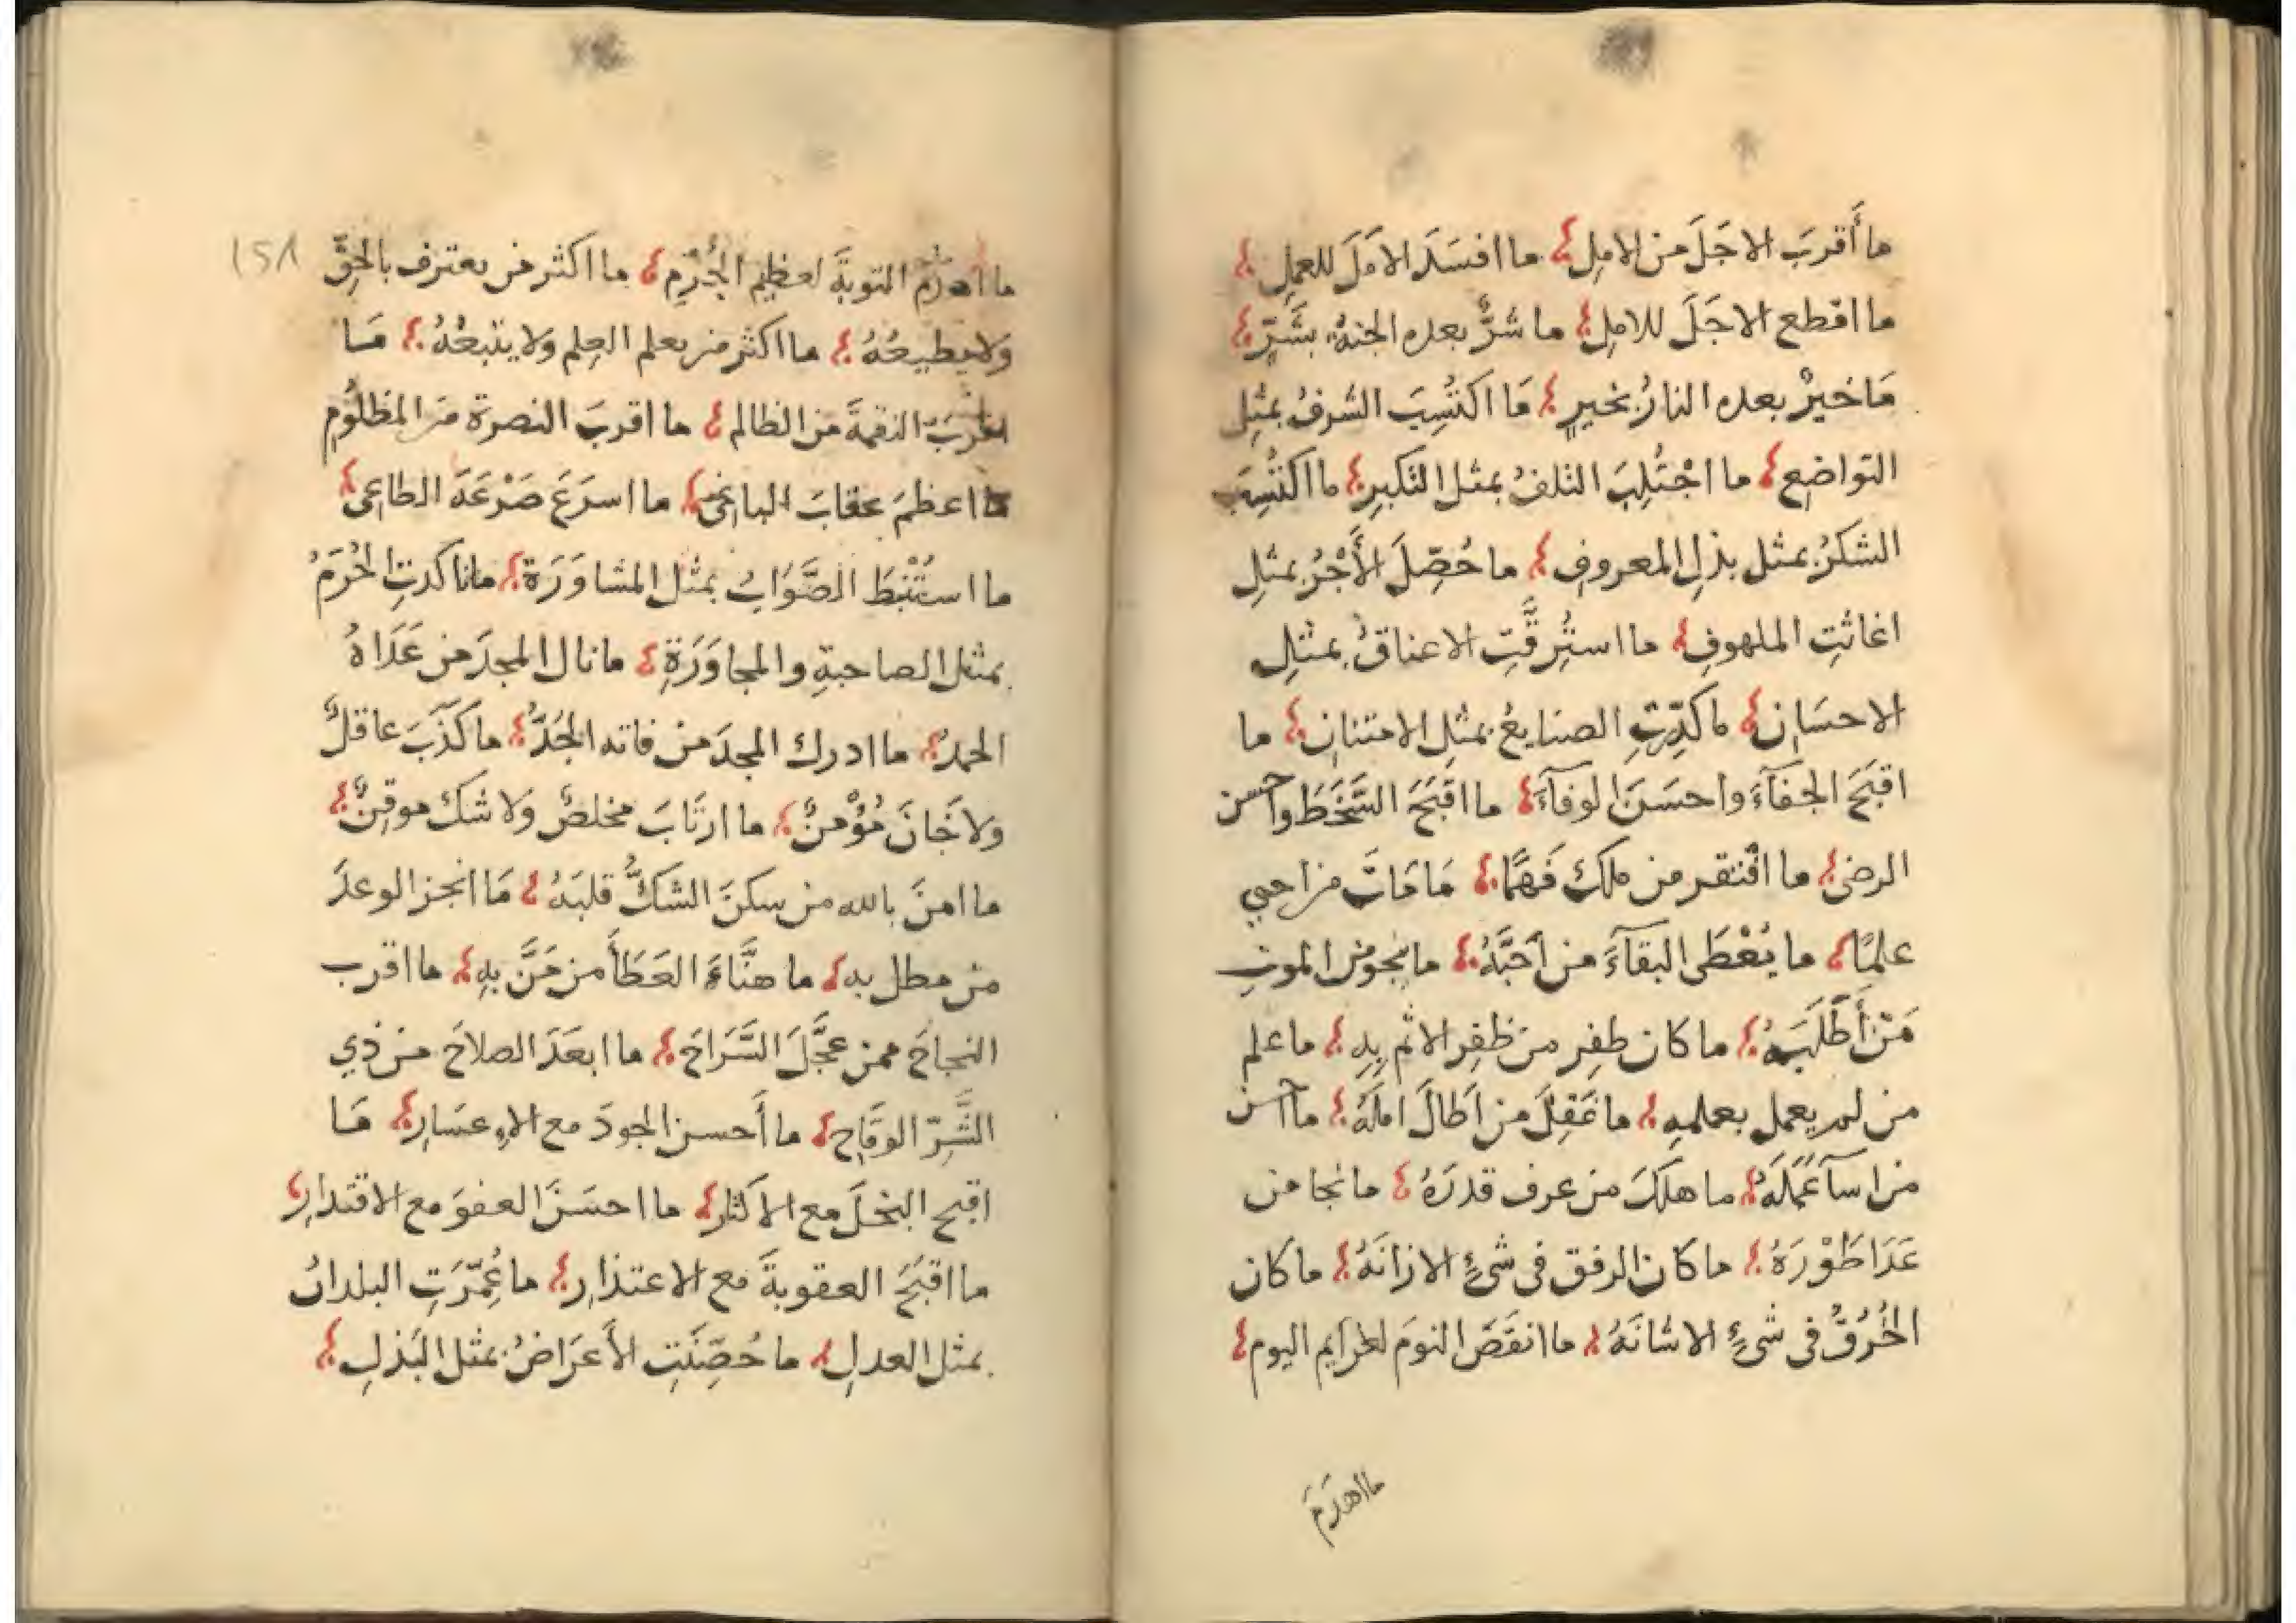 ما أَقربَ الاجَلَ من الاملِ ما افسَدَ الاَمَلَ للعملِ
ما اقطع الاجَلَ للاملِ ما شرٌّ بعده الجنةُ بشَرٍّ
مَا خيرٌ بعده النارُ بخيرٍ مَا اكتُسِبَ الشرفُ بمثِلِ
التواضعِ ما اجْتُلِبَ التلفُ بمثل التكبرِ ما اكتُسِبَ
الشكرُ بمثل بذلِ المعروفِ ما حُصِّلَ الأَجْرُ بمثلِ
اغاثتِ الملهوفِ ما استُرِقَّتِ الاعناقُ بمثلِ
الاحسَانِ ما كدِّرتِ الصنايعُ بمثلِ الامتنانِ ما
اقبَحَ الجفآءَ واحسَنَ الوفآءَ ما اقبَحَ السَّخَطَ واحسن
الرضى ما افتقر من ملك فَهمًا مَا مَاتَ من احيي
علمًا ما يُعْطَى البقآءَ من اَحَبَّهُ ما ينجو من الموتِ
مَنْ أَطَلَبَهُ ما كان ظفِر من ظفِر الاثم بِهِ ما علم
من لم يعمل بعلمهِ ما عَقِلَ من اَطَالَ املَهُ ما احسن
من اسآ عَمَلَهُ ما هلَكَ من عرف قدرَهُ ما نجا من
عَدَا طَوْرَهُ ما كان الرفق في شئٍ الا زانَهُ ما كان
الخُرقُ في شئٍ الا شانَهُ ما انقَصَ النومَ لعزايم اليوم
ما اهدَمَ
١٥٨
ما اهدَمَ التوبةَ لعظيم الجُرْمِ ما اكثر من يعترف بالحقِّ
وَلا يطيعُهُ ما اكثر من يعلم العِلم وَلا يتبعُهُ مَا
اقربَ النقمةَ من الظالم ما اقربَ النصرة من المظلُومِ
ما اعظمَ عقابَ الباغي ما اسرَعَ صَرْعَةَ الطاغي
ما استُنْبَطَ الصَّوَابُ بمثل المشاوَرَة ما تاكدتِ الحُرَمُ
بمثل الصاحبةِ والمجاوَرَةِ ما نال المجدَ من عَدَاهُ
الحمدُ ما ادرك المجدَ من فاته الجُدُّ ما كَذَبَ عاقلٌ
ولا خَانَ مُؤْمنٌ ما ارتَابَ مخلصٌ وَلا شك موقنٌ
ما امنَ بالله من سكنَ الشكُّ قلبَهُ مَا انجز الوعدَ
من مطل به ما هنَّاءَ العَطَأَ من مَنَّ بهِ ما اقرب
النجاحَ ممن عجَّلَ السَّرَاحَ ما ابعَدَ الصلاحَ من ذي
الشَّرِّ الوقَاحِ ما أَحسن الجودَ مع الاِعسَارِ مَا
اقبح البخلَ مع الاكثارِ ما احسَنَ العفوَ مع الاقتدارِ
ما اقبَحَ العقوبةَ مع الاعتذارِ ما عُمّرَتِ البلدانُ
بمثل العدلِ ما حُصِّنَتِ الأَعرَاضُ بمثل البَذلِ